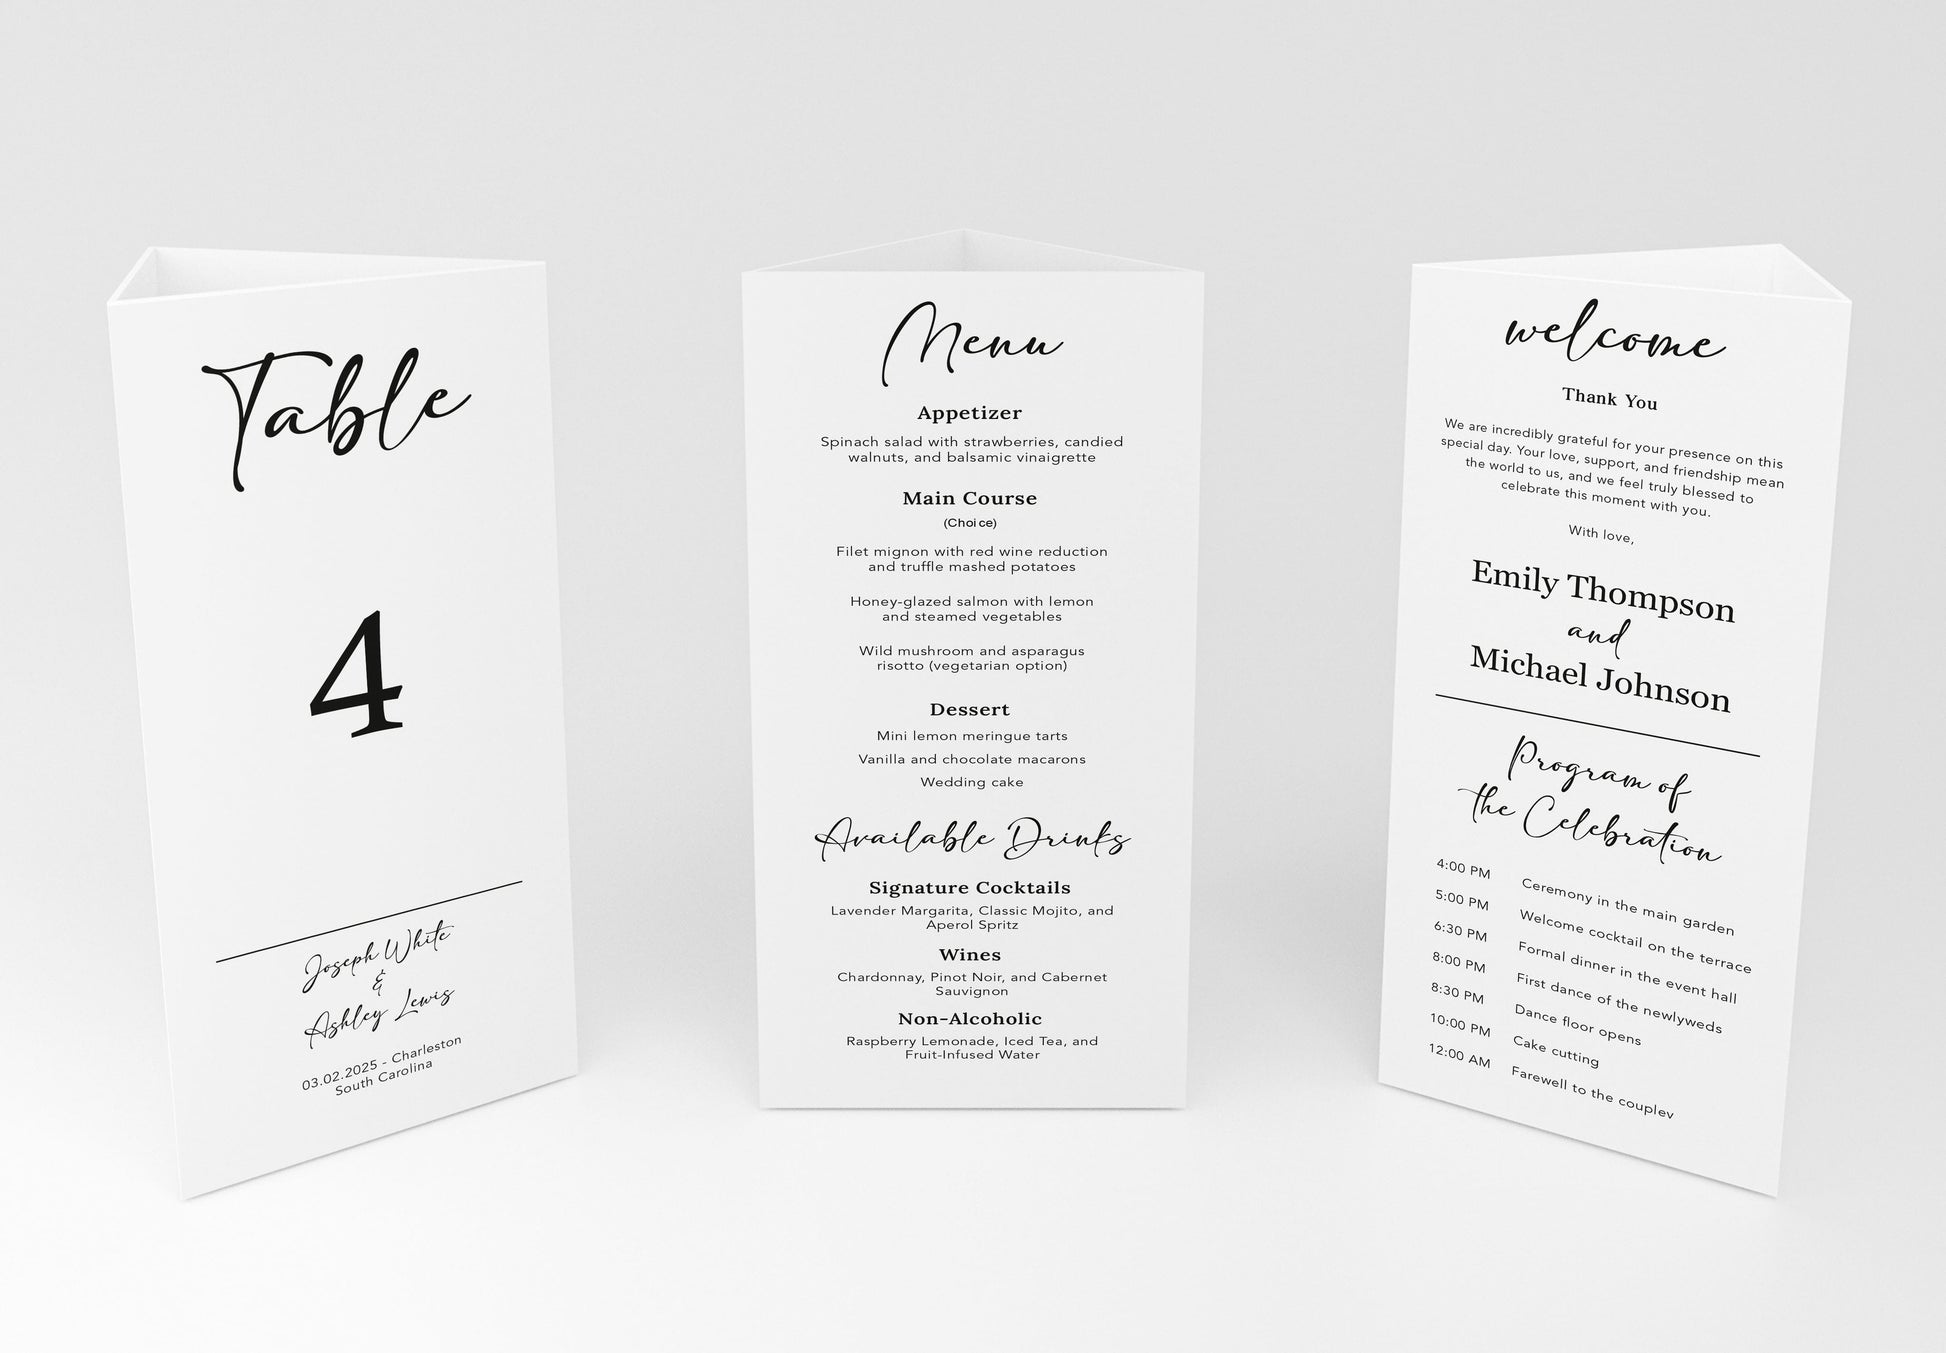 Table
4
Joseph White
&
Ashley Lewis
03.02.2025 - Charleston
South Carolina
Menu
Appetizer
Spinach salad with strawberries, candied
walnuts, and balsamic vinaigrette
Main Course
(Choice)
Filet mignon with red wine reduction
and truffle mashed potatoes
Honey-glazed salmon with lemon
and steamed vegetables
Wild mushroom and asparagus
risotto (vegetarian option)
Dessert
Mini lemon meringue tarts
Vanilla and chocolate macarons
Wedding cake
Available Drinks
Signature Cocktails
Lavender Margarita, Classic Mojito, and
Aperol Spritz
Wines
Chardonnay, Pinot Noir, and Cabernet
Sauvignon
Non-Alcoholic
Raspberry Lemonade, Iced Tea, and
Fruit-Infused Water
welcome
Thank You
We are incredibly grateful for your presence on this
special day. Your love, support, and friendship mean
the world to us, and we feel truly blessed to
celebrate this moment with you.
With love,
Emily Thompson
and
Michael Johnson
Program of
the Celebration
4:00 PM Ceremony in the main garden
5:00 PM Welcome cocktail on the terrace
6:30 PM Formal dinner in the event hall
8:00 PM First dance of the newlyweds
8:30 PM Dance floor opens
10:00 PM Cake cutting
12:00 AM Farewell to the couplev